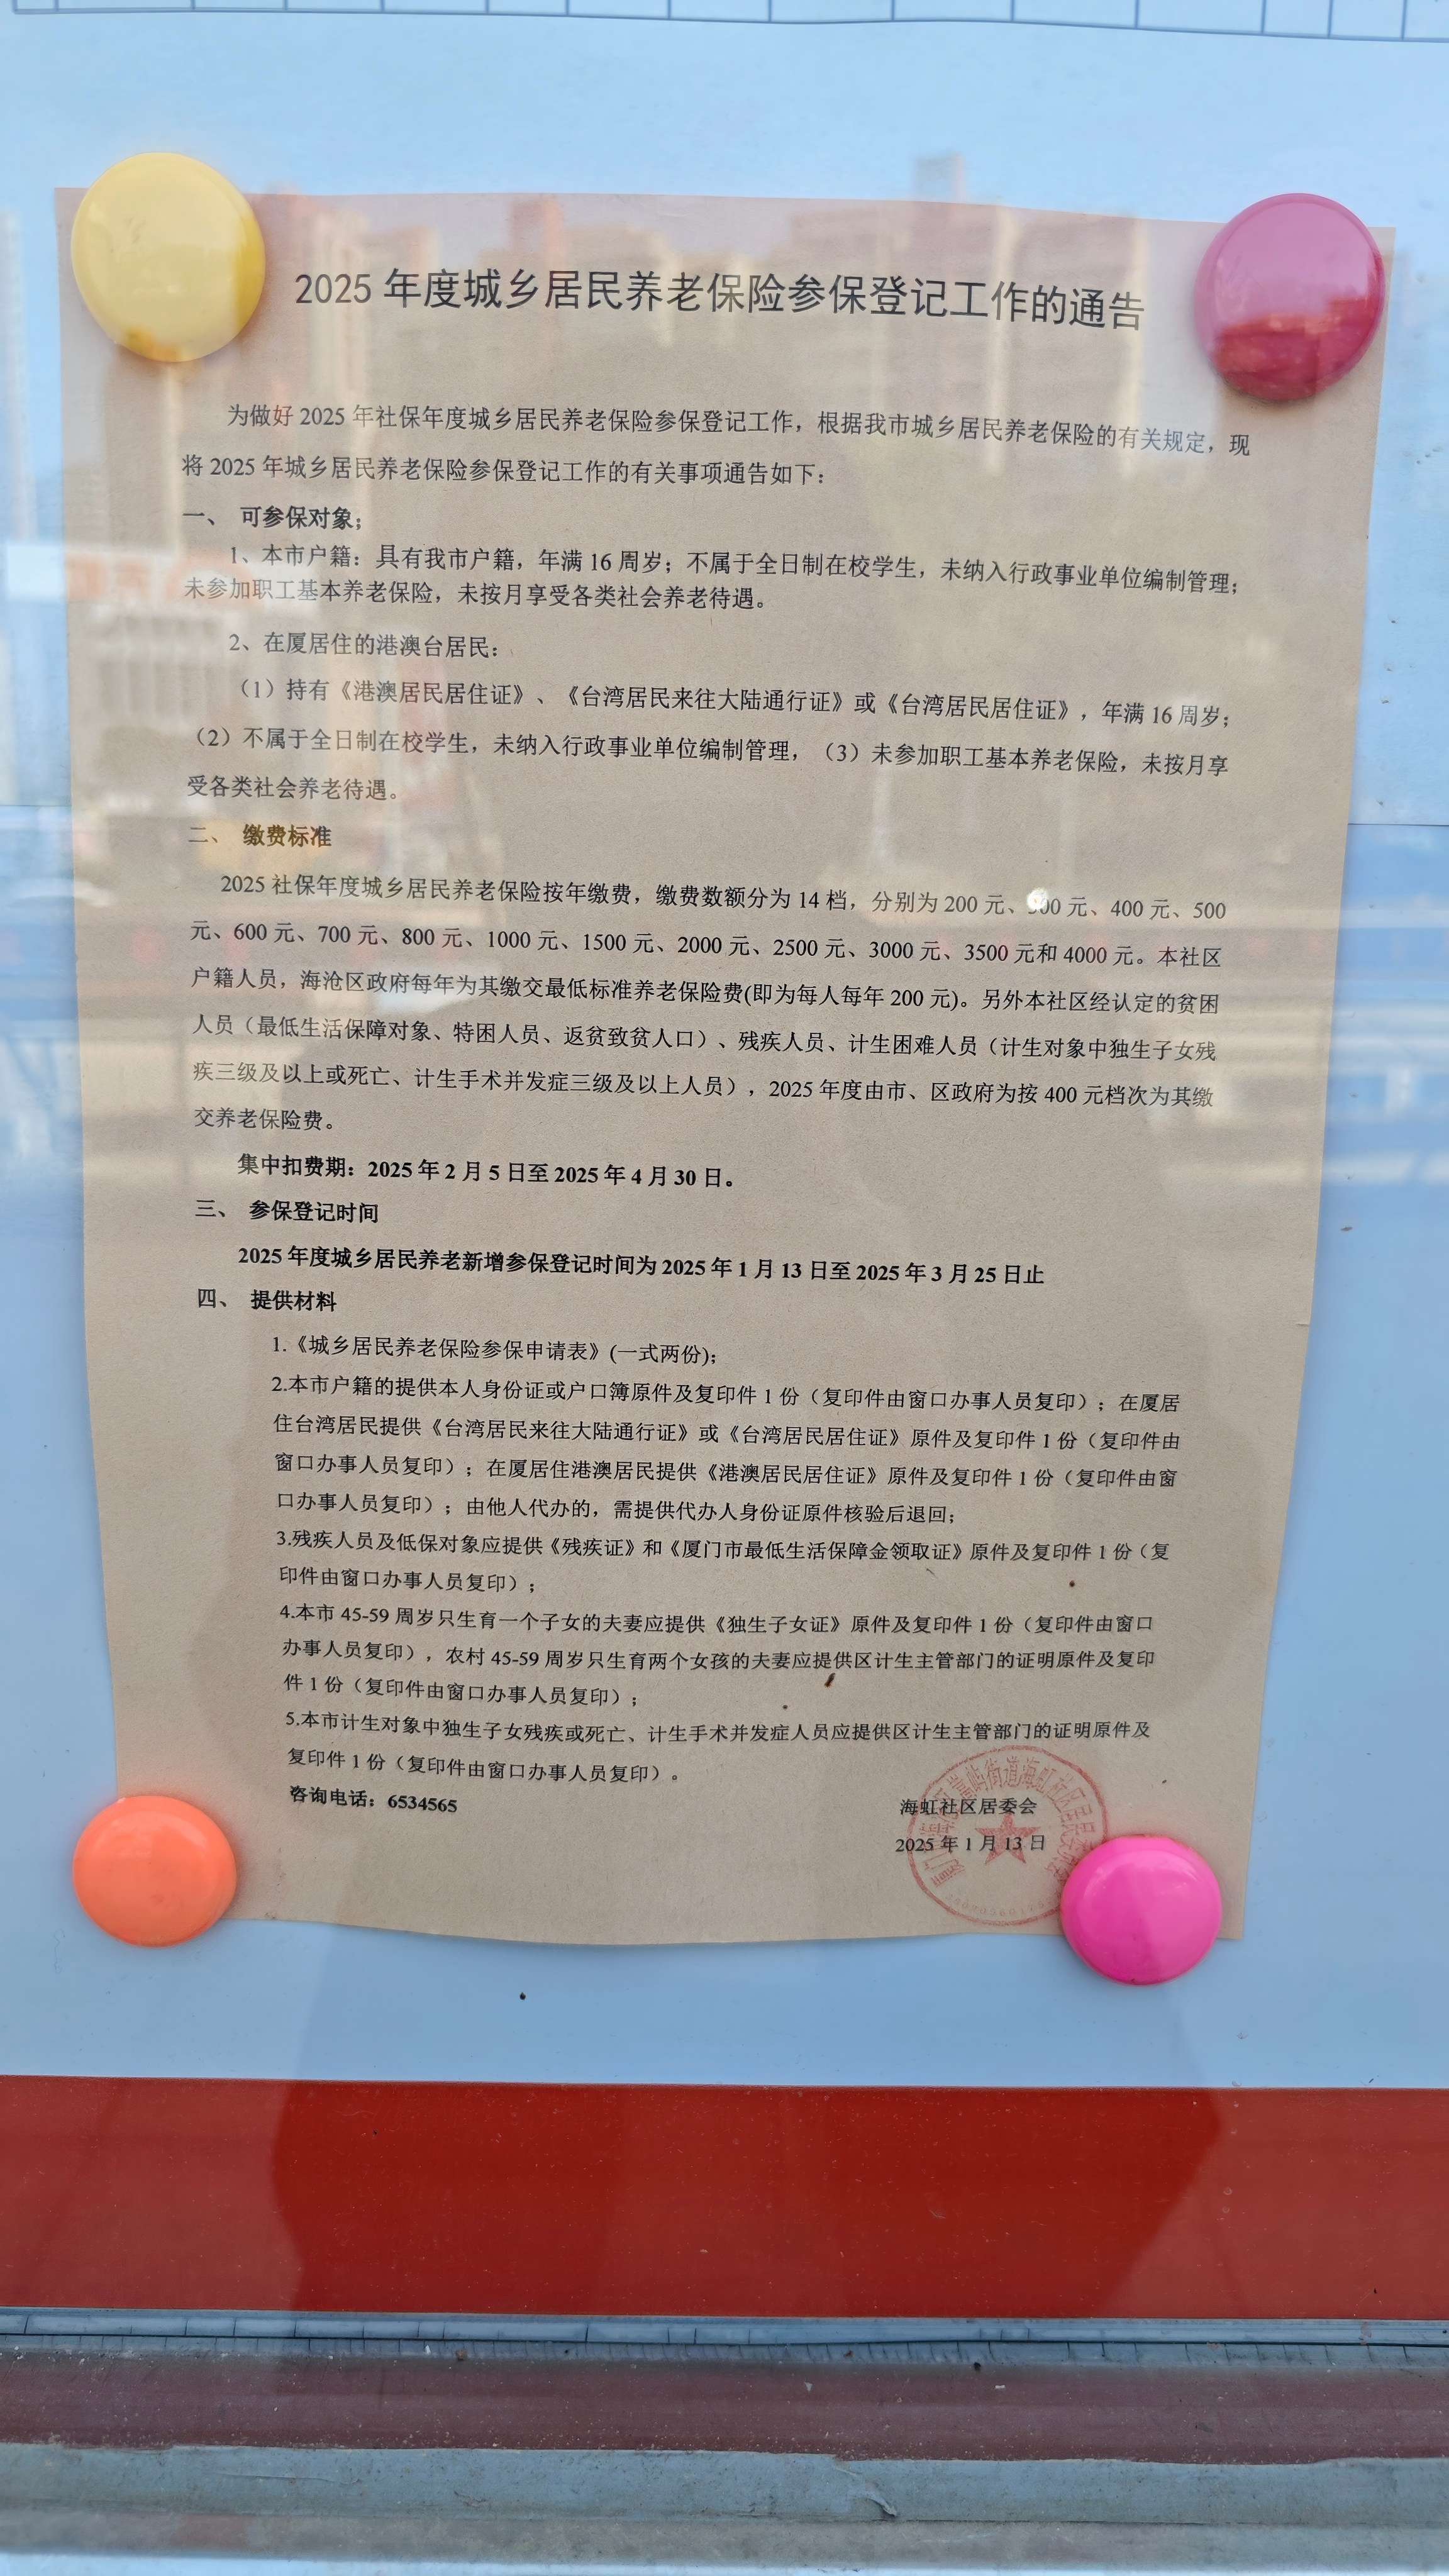 2025 年度城乡居民养老保险参保登记工作的通告
为做好 2025 年社保年度城乡居民养老保险参保登记工作，根据我市城乡居民养老保险的有关规定，现
将 2025 年城乡居民养老保险参保登记工作的有关事项通告如下：
一、 可参保对象；
1、本市户籍：具有我市户籍，年满 16 周岁；不属于全日制在校学生，未纳入行政事业单位编制管理；
未参加职工基本养老保险，未按月享受各类社会养老待遇。
2、在厦居住的港澳台居民：
（1）持有《港澳居民居住证》、《台湾居民来往大陆通行证》或《台湾居民居住证》，年满 16 周岁；
（2）不属于全日制在校学生，未纳入行政事业单位编制管理，（3）未参加职工基本养老保险，未按月享
受各类社会养老待遇。
二、 缴费标准
2025 社保年度城乡居民养老保险按年缴费，缴费数额分为 14 档，分别为 200 元、300 元、400 元、500
元、600 元、700 元、800 元、1000 元、1500 元、2000 元、2500 元、3000 元、3500 元和 4000 元。本社区
户籍人员，海沧区政府每年为其缴交最低标准养老保险费(即为每人每年 200 元)。另外本社区经认定的贫困
人员（最低生活保障对象、特困人员、返贫致贫人口）、残疾人员、计生困难人员（计生对象中独生子女残
疾三级及以上或死亡、计生手术并发症三级及以上人员），2025 年度由市、区政府为按 400 元档次为其缴
交养老保险费。
集中扣费期：2025 年 2 月 5 日至 2025 年 4 月 30 日。
三、 参保登记时间
2025 年度城乡居民养老新增参保登记时间为 2025 年 1 月 13 日至 2025 年 3 月 25 日止
四、 提供材料
1.《城乡居民养老保险参保申请表》(一式两份)；
2.本市户籍的提供本人身份证或户口簿原件及复印件 1 份（复印件由窗口办事人员复印）；在厦居
住台湾居民提供《台湾居民来往大陆通行证》或《台湾居民居住证》原件及复印件 1 份（复印件由
窗口办事人员复印）；在厦居住港澳居民提供《港澳居民居住证》原件及复印件 1 份（复印件由窗
口办事人员复印）；由他人代办的，需提供代办人身份证原件核验后退回；
3.残疾人员及低保对象应提供《残疾证》和《厦门市最低生活保障金领取证》原件及复印件 1 份（复
印件由窗口办事人员复印）；
4.本市 45-59 周岁只生育一个子女的夫妻应提供《独生子女证》原件及复印件 1 份（复印件由窗口
办事人员复印），农村 45-59 周岁只生育两个女孩的夫妻应提供区计生主管部门的证明原件及复印
件 1 份（复印件由窗口办事人员复印）；
5.本市计生对象中独生子女残疾或死亡、计生手术并发症人员应提供区计生主管部门的证明原件及
复印件 1 份（复印件由窗口办事人员复印）。
咨询电话：6534565
海虹社区居委会
2025 年 1 月 13 日